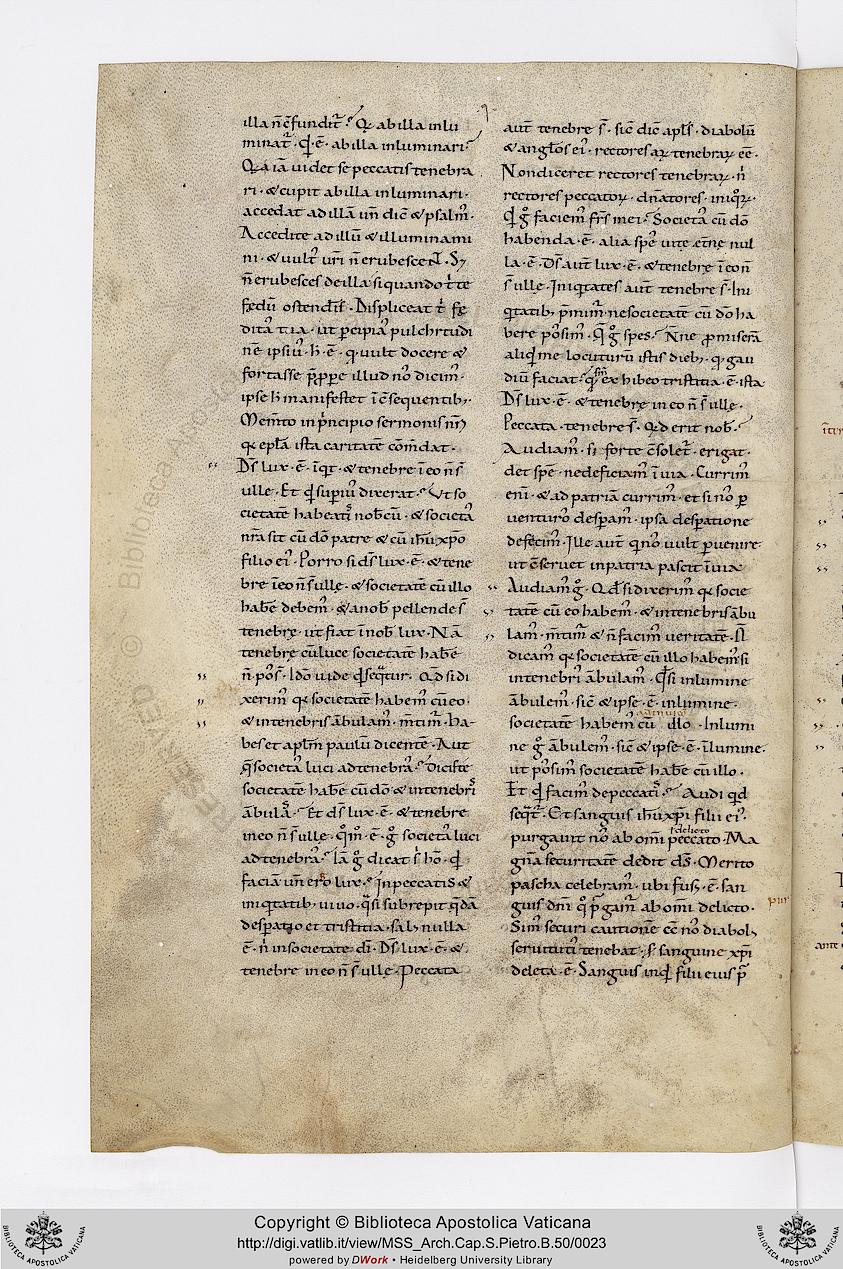 illa n̄ c̄fundit᷑. Qr ab illa inlu
minat᷑. q̄d ē. ab illa inluminari.
Qr a iā uidet se peccatis tenebra
ri. & cupit ab illa inluminari.
accedat ad illā un̄ dic̄ & psalm᷒.
Accedite ad illū & illuminami
ni. & uult᷒ ur̄i n̄ erubescent. S;
n̄ erubesces de illa si quando t̄ te
fędū ostenderit. Displiceat t̄ fę
ditas tua. ut percipias pulchritudi
nē ipsius. h̄ ē. q̄ uult docere &
fortasse p̄pere illud nos dicim᷒.
ipse h̄ manifestet ī c̄sequentib;.
Mem̄to in p̄ncipio sermonis nr̄i
qr epl̄a ista caritatē com̄dat.
Ds̄ lux. ē. īq̄t. & tenebre ī eo n̄ s̄
ulle. Et q̄d superi᷒ dixerat. Ut so
cietatē habeatis nob̄cū. & societas
nr̄a sit cū dō patre & cū ih̄u xp̄o
filio ei᷒. Porro si ds̄ lux. ē. & tene
bre ī eo n̄ s̄ ullę. & societatē cū illo
habē debem᷒. & a nob̄ pellende s̄
tenebrę. ut fiat ī nob̄ lux. Nā
tenebrę cū luce societatē habē
n̄ pos̄. Ido᷒ uide q̄d seq̄tur. Qd̄ si di
xerim᷒ qr societatē habem᷒ cū eo.
& in tenebris ābulam᷒. m̄tim᷑. Ha-
bes et apl̄m paulū dicentē. Aut
q̄ societas luci ad tenebras. Dicis te
societatē habē cū dō & in tenebris
ābulas. Et ds̄ lux. ē. & tenebre
in eo n̄ s̄ ulle. q̄m᷒. ē. g̊ societas luci
ad tenebras. Iā g̊ dicat s̄ hō. q̄d
faciā un̄ ero lux. In peccatis &
iniquitatib; uiuo. q̄si subrepit q̄dā
desperatio et tristitia. sal᷒ nulla
ē. n̄ in societate dī. Ds̄ lux. ē. &
tenebre in eo n̄ s̄ ullę. Peccata
aut̄ tenebre s̄. sic̄ dic̄ apl̄s. diabolū
& angl̄os ei᷒. rectores ar̄ tenebrar̄ eē.
Non diceret rectores tenebrar̄. n̄
rectores peccator̄. dn̄atores. iniq̄r̄.
q̄d g̊ faciem᷒ fr̄s mei. Societas cū dō
habenda. ē. alia spes uite et̄ne nul
la. ē. Ds̄ aut̄ lux. ē. & tenebrę ī eo n̄
s̄ ulle. Iniquitates aut̄ tenebre s̄. Ini
quitatib; p̄mim᷑. ne societatē cū dō ha
bere possim᷒. Q̄ g̊ spes. Nn̄e promiserā
aliq̄d me locuturū istis dieb;. q̄ gau
diū faciat. q̄d s̄ n̄ exhibeo tristitia. ē. ista
Ds̄ lux. ē. & tenebrę in eo n̄ s̄ ulle.
Peccata. tenebre s̄. Qd̄ erit nob̄.
Audiam᷒. si forte c̄solet᷑. erigat.
det spē. ne deficiam᷒ ī uia. Currim᷒
eni᷒. & ad patriā currim᷒. et si nos per
uenturos desperam᷒. ipsa desperatione
defecim᷒. Ille aut̄ q̄ nos uult peruenire.
ut c̄seruet in patria pascit ī uia.
Audiam᷒ g̊. Qd̄ si dixerim᷒ qr socie
tatē cū eo habem᷒. & in tenebris ābu
lam᷒. m̄tim᷑ & n̄ facim᷒ ueritatē. N̄
dicam᷒ qr societatē cū illo habem᷒ si
in tenebris ābulam᷒. Q̄d si in lumine
ābulem᷒. sic̄ & ipse. ē. in lumine.
societatē habem᷒ cū illo. In lumi
ne g̊ ābulem᷒. sic̄ & ipse. ē. ī lumine.
ut possim᷒ societatē habē cū illo.
Et q̄d facim᷒ de peccatis. Audi quod
seq̄t᷑. Et sanguis ih̄u xp̄i filii ei᷒.
delicto
purgauit nos ab omi peccato. Ma
gnā securitatē dedit ds̄. Merito
pascha celebram᷒. ubi fus᷒. ē. san
guis dn̄i q̊ purgam᷑ ab om̄i delicto.
Sim᷒ securi cautionē cc̄ nos diabol᷒
seruitutis tenebat. s; sanguine xp̄i
deleta. ē. Sanguis inq̄d filii eius pur
pur
ante
Copyright © Biblioteca Apostolica Vaticana
http://digi.vatlib.it/view/MSS_Arch.Cap.S.Pietro.B.50/0023
powered by DWork • Heidelberg University Library